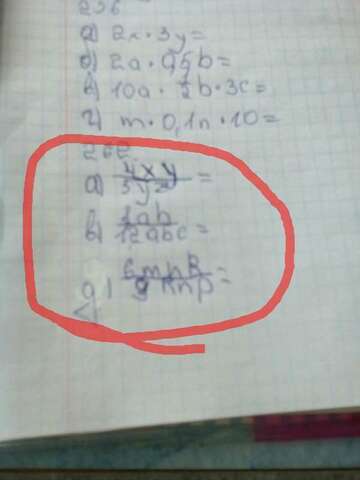 256
а) 2x·3y=
б) 2a·0,5b=
10a·
b·3c=
г) m·0,1n·10=
262
а) 4xy/5yz=
в) ab/12abc=
д) 6mnk/9knp=